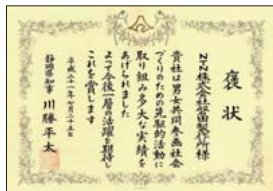 褒状
NTN株式会社磐田製作所様
貴社は男女共同参画社会
づくりのための先駆的活動に
取り組み多大な実績を
あげられました
よって今後一層の活躍を期待し
これを賞します
平成二十一年七月三十五日
静岡県知事 川勝平太